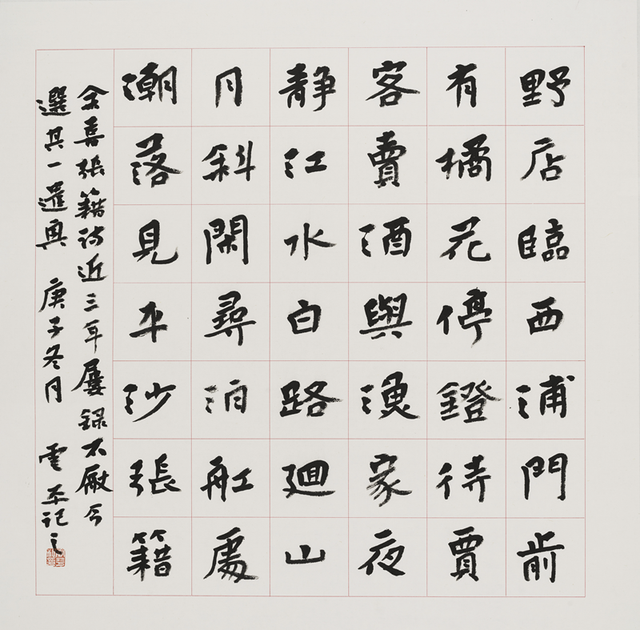 野店臨西浦門前
有橘花停鐙待賈
客賣酒與漁家夜
静江水白路廻山
月斜閑尋泊舡處
潮落見平沙張籍
余喜張籍詩近三年屢録不厭今
選其一遣興 庚子冬月 雲平記之